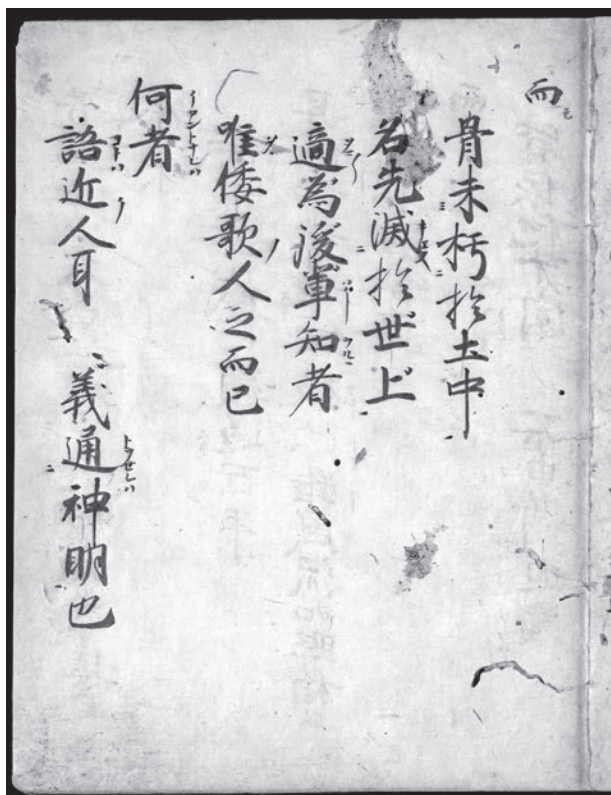 而
骨未朽於土中
名先滅於世上
適為後軰知者
唯倭歌人之而已
何者
語近人耳 義通神明也